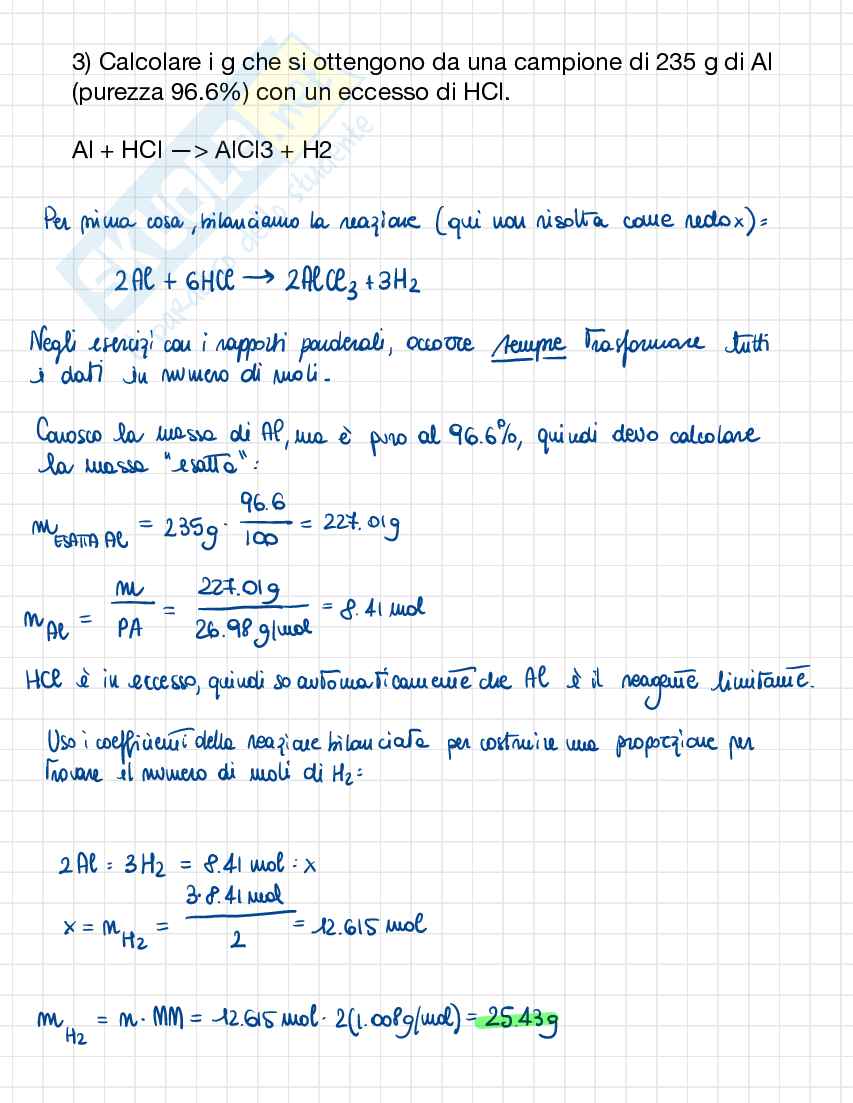 3) Calcolare i g che si ottengono da una campione di 235 g di Al
(purezza 96.6%) con un eccesso di HCl.
Al + HCl —> AlCl3 + H2
Per prima cosa, bilanciamo la reazione (qui non risolta come redox):
2Al + 6HCl → 2AlCl₃ + 3H₂
Negli esercizi con i rapporti ponderali, occorre sempre trasformare tutti
i dati in numero di moli.
Conosco la massa di Al, ma è puro al 96.6%, quindi devo calcolare
la massa "esatta":
m ESATTA Al = 235g · 96.6/100 = 227.01g
n Al = m/PA = 227.01g/26.98 g/mol = 8.41 mol
HCl è in eccesso, quindi so automaticamente che Al è il reagente limitante.
Uso i coefficienti della reazione bilanciata per costruire una proporzione per
trovare il numero di moli di H₂:
2Al : 3H₂ = 8.41 mol : x
x = n H₂ = 3·8.41 mol/2 = 12.615 mol
m H₂ = n · MM = 12.615 mol · 2(1.008g/mol) = 25.43g
SKUOLA.net
il paradiso dello studente